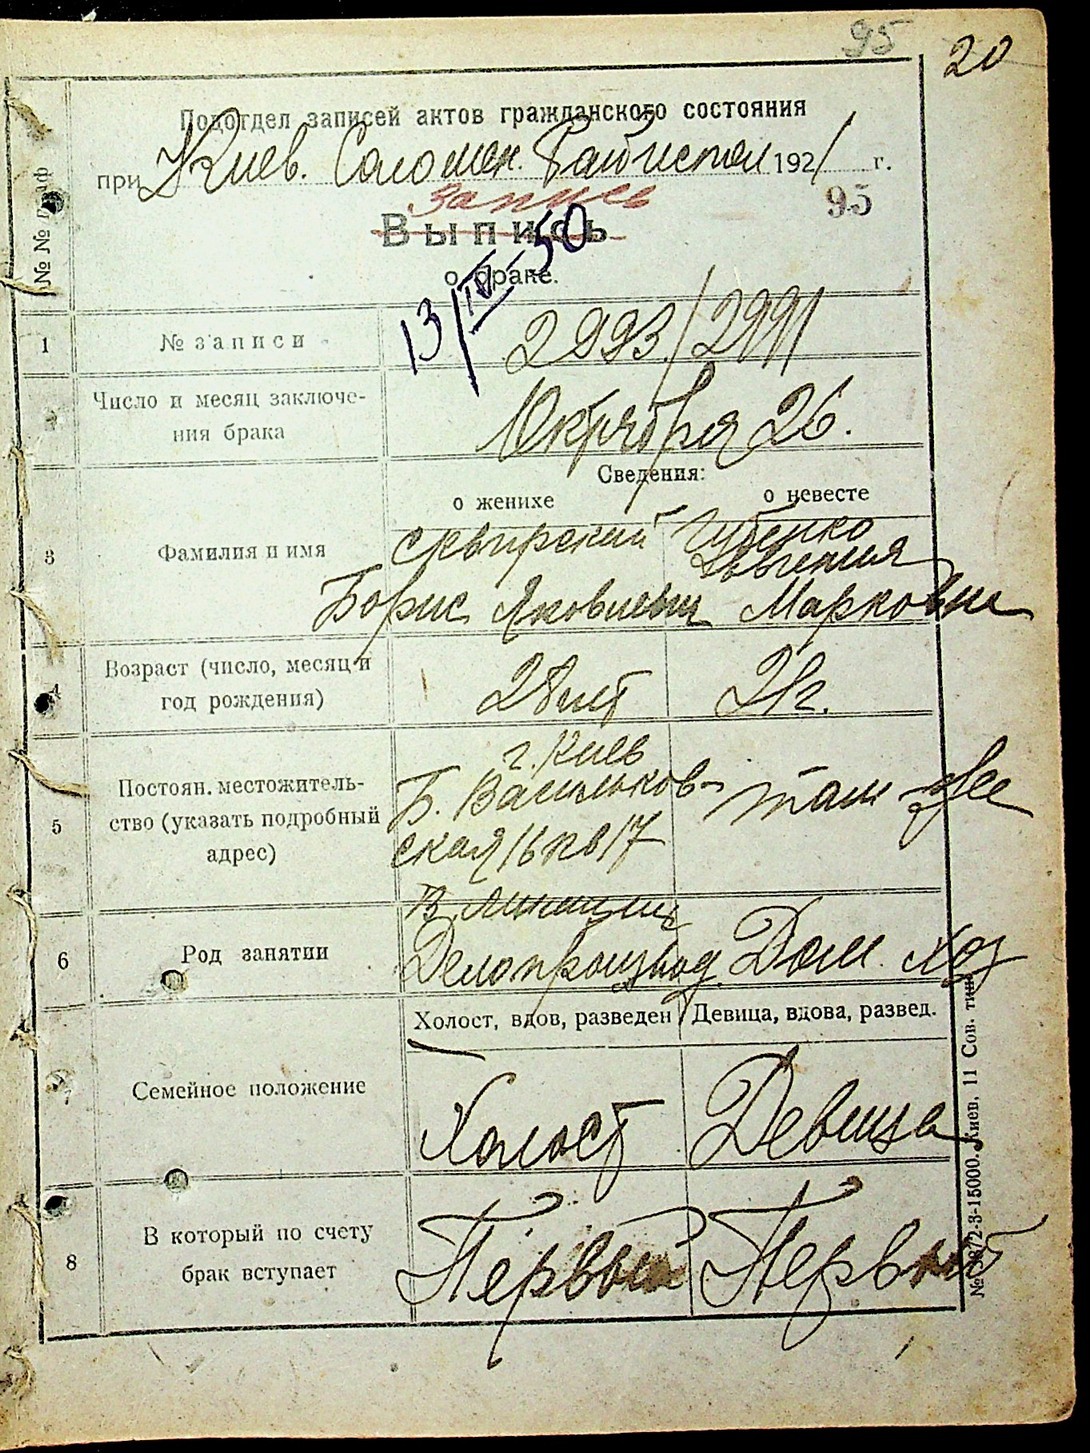 95 20
Подотдел записей актов гражданского состояния
при Киев. Соломен. 1921 г.
Запись 95
Выпись
о браке.
13/IV-50
№ № граф
1 № записи 2993/2991
2 Число и месяц заключе-
ния брака Октября 26.
Сведения:
о женихе о невесте
3 Фамилия и имя Сквирский Губенко
Евгения
Борис Яковлевич Марковна
4 Возраст (число, месяц и
год рождения) 28 лет 21 г.
5 Постоян. местожитель-
ство (указать подробный
адрес) г. Киев
Б. Васильков-
ская 16 кв 17 там же
6 Род занятии Делопроизвод Дом. хоз
7 Семейное положение
Холост, вдов, разведен Девица, вдова, развед.
Холост Девица
8 В который по счету
брак вступает Первый Первый
2-3-15000. Киев, 11 Сов. тип.